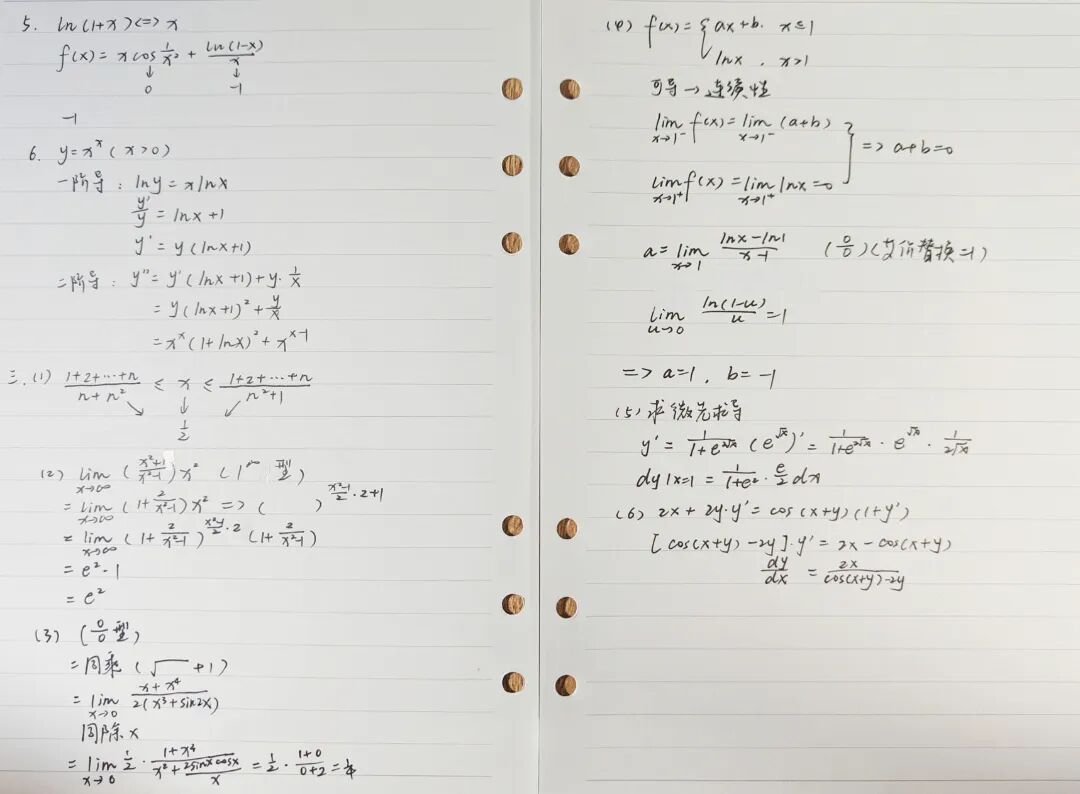 5. ln(1+x)<=>x
f(x)= x cos 1/x² + ln(1-x)/x
↓ ↓
0 -1
-1
6. y=x^x (x>0)
一阶导: lny = xlnx
y'/y = lnx+1
y' = y(lnx+1)
二阶导: y''= y'(lnx+1)+y·1/x
= y(lnx+1)²+y/x
= x^x(1+lnx)²+x^(x-1)
三.(1) (1+2+…+n)/(n+n²) ≤ x ≤ (1+2+…+n)/(n²+1)
↘ ↓ ↙
1/2
(2) lim x→∞ ((x²+1)/(x²-1))x² (1^∞型)
= lim x→∞ (1+2/(x²-1))x² => ( )^((x²-1)/2·2+1)
= lim x→∞ (1+2/(x²-1))^((x²-1)/2·2) (1+2/(x²-1))
= e²·1
= e²
(3) (0/0型)
=同乘(√ +1)
= lim x→0 (x+x⁴)/(2(x³+sin2x))
同除x
= lim x→0 1/2·(1+x⁴)/(x²+(2sinxcosx)/x) = 1/2·(1+0)/(0+2)=1/4
(4) f(x)= { ax+b. x≤1
lnx, x>1
可导→连续性
lim x→1⁻ f(x)=lim x→1⁻ (a+b)
} => a+b=0
lim x→1⁺ f(x)=lim x→1⁺ lnx=0
a=lim x→1 (lnx-ln1)/(x-1) (0/0)(价替换=1)
lim u→0 ln(1-u)/u=1
=> a=1, b=-1
(5) 求微先求导
y' = 1/(1+e^(2√x)) (e^√x)' = 1/(1+e^(2√x))·e^√x·1/(2√x)
dy|x=1 = 1/(1+e²)·e/2 dx
(6) 2x+2y·y'=cos(x+y)(1+y')
[cos(x+y)-2y]·y'=2x-cos(x+y)
dy/dx = 2x/(cos(x+y)-2y)